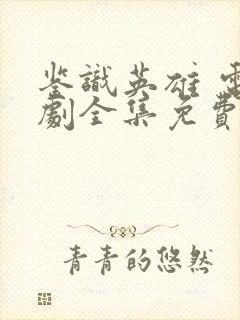 鉴識英雄 電
劇全集免費
青青的悠然